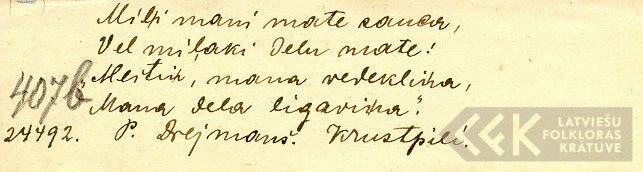 Milži mani mate sauca,
Vel milaki delu mate:
"Meitiņ, mana vedekliņa,
Mana dela ligaviņa".
407b
24492. P. Drejmanš. Krustpilī.
LATVIEŠU
FOLKLORAS
KRĀTUVE